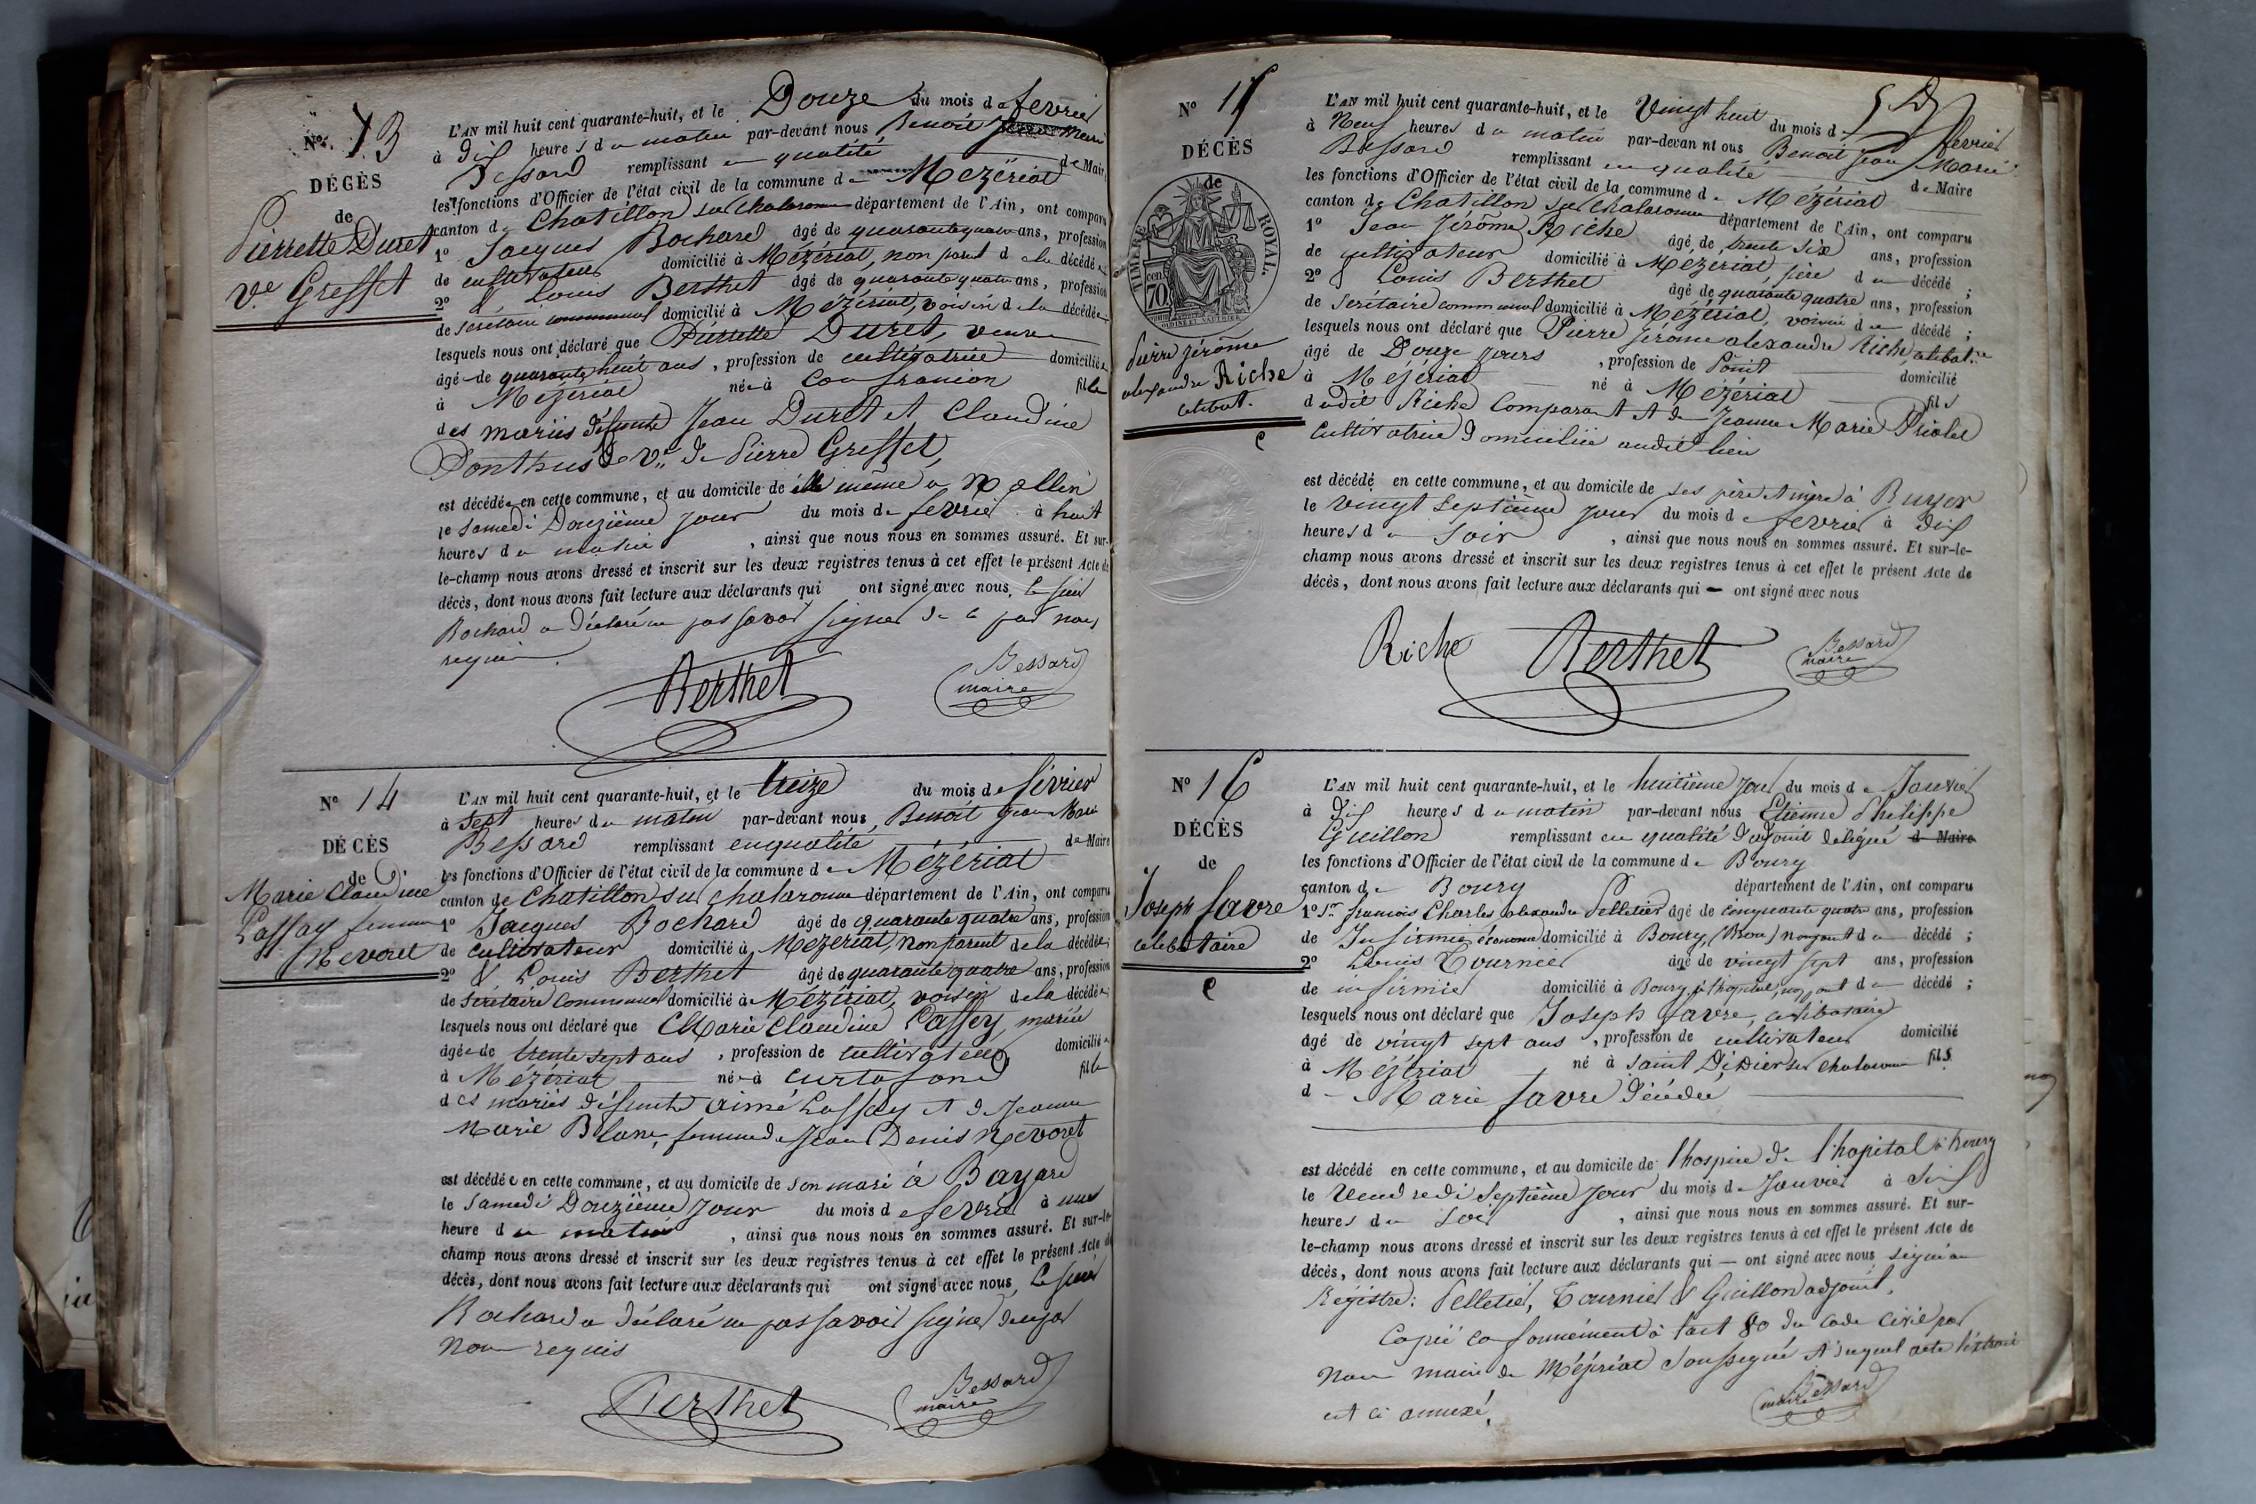 N° 13
DÉCÈS
de
Pierrette Duret
Ve Greffet
L'AN mil huit cent quarante-huit, et le Douze du mois de fevrier
à Dix heures du matin par-devant nous Benoit Jean Marie
Bessard remplissant en qualité de Maire
les fonctions d'Officier de l'état civil de la commune de Mézériat
canton de Chatillon sur Chalaronne département de l'Ain, ont comparu
1° Jacques Bochard âgé de quarante quatre ans, profession
de cultivateur domicilié à Mézériat, non parent de la décédée
2° & Louis Berthet âgé de quarante quatre ans, profession
de secrétaire communal domicilié à Mézériat, voisin de la décédée
lesquels nous ont déclaré que Pierrette Duret, veuve
âgée de quarante huit ans, profession de cultivatrice domiciliée
à Mézériat née à Confrançon fille
des mariés défunts Jean Duret et Claudine
Ponthus & Ve de Pierre Greffet,
est décédée en cette commune, et au domicile de elle même a
le samedi Douzième jour du mois de fevrier à huit
heures du matin, ainsi que nous nous en sommes assuré. Et sur-
le-champ nous avons dressé et inscrit sur les deux registres tenus à cet effet le présent Acte de
décès, dont nous avons fait lecture aux déclarants qui ont signé avec nous, le sieur
Bochard a déclaré ne pas savoir signer de ce par nous
requis.
Berthet
Bessard
maire
N° 14
DÉCÈS
de
Marie Claudine
Lassay femme
Nevoret
L'AN mil huit cent quarante-huit, et le treize du mois de février
à sept heures du matin par-devant nous Benoit Jean Marie
Bessard remplissant en qualité de Maire
les fonctions d'Officier de l'état civil de la commune de Mézériat
canton de Chatillon sur chalaronne département de l'Ain, ont comparu
1° Jacques Bochard âgé de quarante quatre ans, profession
de cultivateur domicilié à Mézériat, non parent de la décédée;
2° & Louis Berthet âgé de quarante quatre ans, profession
de secrétaire communal domicilié à Mézériat, voisin de la décédée;
lesquels nous ont déclaré que Marie Claudine Lassay, mariée
âgée de trente sept ans, profession de domiciliée
à Mézériat née à Curtafond fille
des mariés défunts aimé Lassay et de Jeanne
Marie Blanc, femme de Jean Denis Nevoret
est décédée en cette commune, et au domicile de son mari à Bayard
le samedi Douzième jour du mois de fevrier à une
heure du matin, ainsi que nous nous en sommes assuré. Et sur-le-
champ nous avons dressé et inscrit sur les deux registres tenus à cet effet le présent Acte de
décès, dont nous avons fait lecture aux déclarants qui ont signé avec nous, le sieur
Bochard a déclaré ne pas savoir signer de ce par
nous requis
Berthet
Bessard
maire
N° 15
DÉCÈS
de
TIMBRE ROYAL
70
Pierre Jérôme
alexandre Riche
célibat.
L'AN mil huit cent quarante-huit, et le Vingt huit du mois de fevrier
à Neuf heures du matin par-devan nt ous Benoit Jean Marie
Bessard remplissant en qualité de Maire
les fonctions d'Officier de l'état civil de la commune de Mézériat
canton de Chatillon sur Chalaronne département de l'Ain, ont comparu
1° Jean Jérôme Riche âgé de trente six ans, profession
de cultivateur domicilié à Mézériat, père du décédé;
2° & Louis Berthet âgé de quarante quatre ans, profession
de secrétaire communal domicilié à Mézériat, voisin du décédé;
lesquels nous ont déclaré que Pierre Jérôme alexandre Riche, célibatre
âgé de Douze jours, profession de Point domicilié
à Mézériat né à Mézériat fils
dudit Riche Comparant et de Jeanne Marie Priolet
Cultivatrice domiciliée audit lieu
est décédé en cette commune, et au domicile de ses père et mère à
le vingt septième jour du mois de fevrier à dix
heures du soir, ainsi que nous nous en sommes assuré. Et sur-le-
champ nous avons dressé et inscrit sur les deux registres tenus à cet effet le présent Acte de
décès, dont nous avons fait lecture aux déclarants qui — ont signé avec nous
Riche Berthet
Bessard
maire
N° 16
DÉCÈS
de
Joseph favre
célibataire
L'AN mil huit cent quarante-huit, et le huitième jour du mois de Janvier
à Dix heures du matin par-devant nous Etienne Philippe
Guillon remplissant en qualité d'adjoint délégué de Maire
les fonctions d'Officier de l'état civil de la commune de Bourg
canton de Bourg département de l'Ain, ont comparu
1° Sr françois Charles alexandre Pelletier âgé de cinquante quatre ans, profession
de Infirmier économe domicilié à Bourg, (Brou) non parent du décédé;
2° Louis Tournier âgé de vingt sept ans, profession
de infirmier domicilié à Bourg à l'hopital, non part du décédé;
lesquels nous ont déclaré que Joseph favre, célibataire
âgé de vingt sept ans, profession de cultivateur domicilié
à Mézériat né à Saint Didier sur Chalaronne fils
de Marie favre décédée
est décédé en cette commune, et au domicile de l'hospice de l'hopital à Bourg
le Vendredi Septième jour du mois de Janvier à six
heures du soir, ainsi que nous nous en sommes assuré. Et sur-
le-champ nous avons dressé et inscrit sur les deux registres tenus à cet effet le présent Acte de
décès, dont nous avons fait lecture aux déclarants qui — ont signé avec nous signé au
Régistre: Pelletier, Tournier & Guillon adjoint.
Copié conformément à l'art 80 du code civil par
Nous maire de Mézériat soussigné et duquel acte l'extrait
est ci annexé.
Bessard
maire